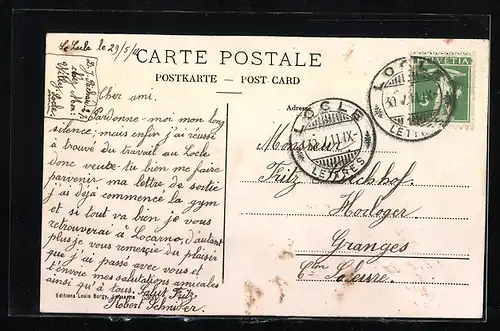 Le Locle le 29/5/11
CARTE POSTALE
POSTKARTE — POST-CARD
Adresse
HELVETIA
LOCLE
30.V.11.IX
LETTRES
LOCLE
30.V.11.IX
LETTRES
Cher ami.
Pardonne-moi mon long
silence; mais enfin j'ai réussi
à trouvé du travail au Locle
donc veute-tu bien me faire
parvenir ma lettre de sortie
j'ai déjà commencé la gym
et si tout va bien je vous
retrouverai à Locarno, d'autant
plus je vous remercie du plaisir
que j'ai passé avec vous et
t'envoie mes salutations amicales
ainsi qu'à tous. Salut Fritz
Robert Schnider.
Monsieur
Fritz
Horloger
Granges
Cton Soleure.
Editions Louis Burgy, Lausanne